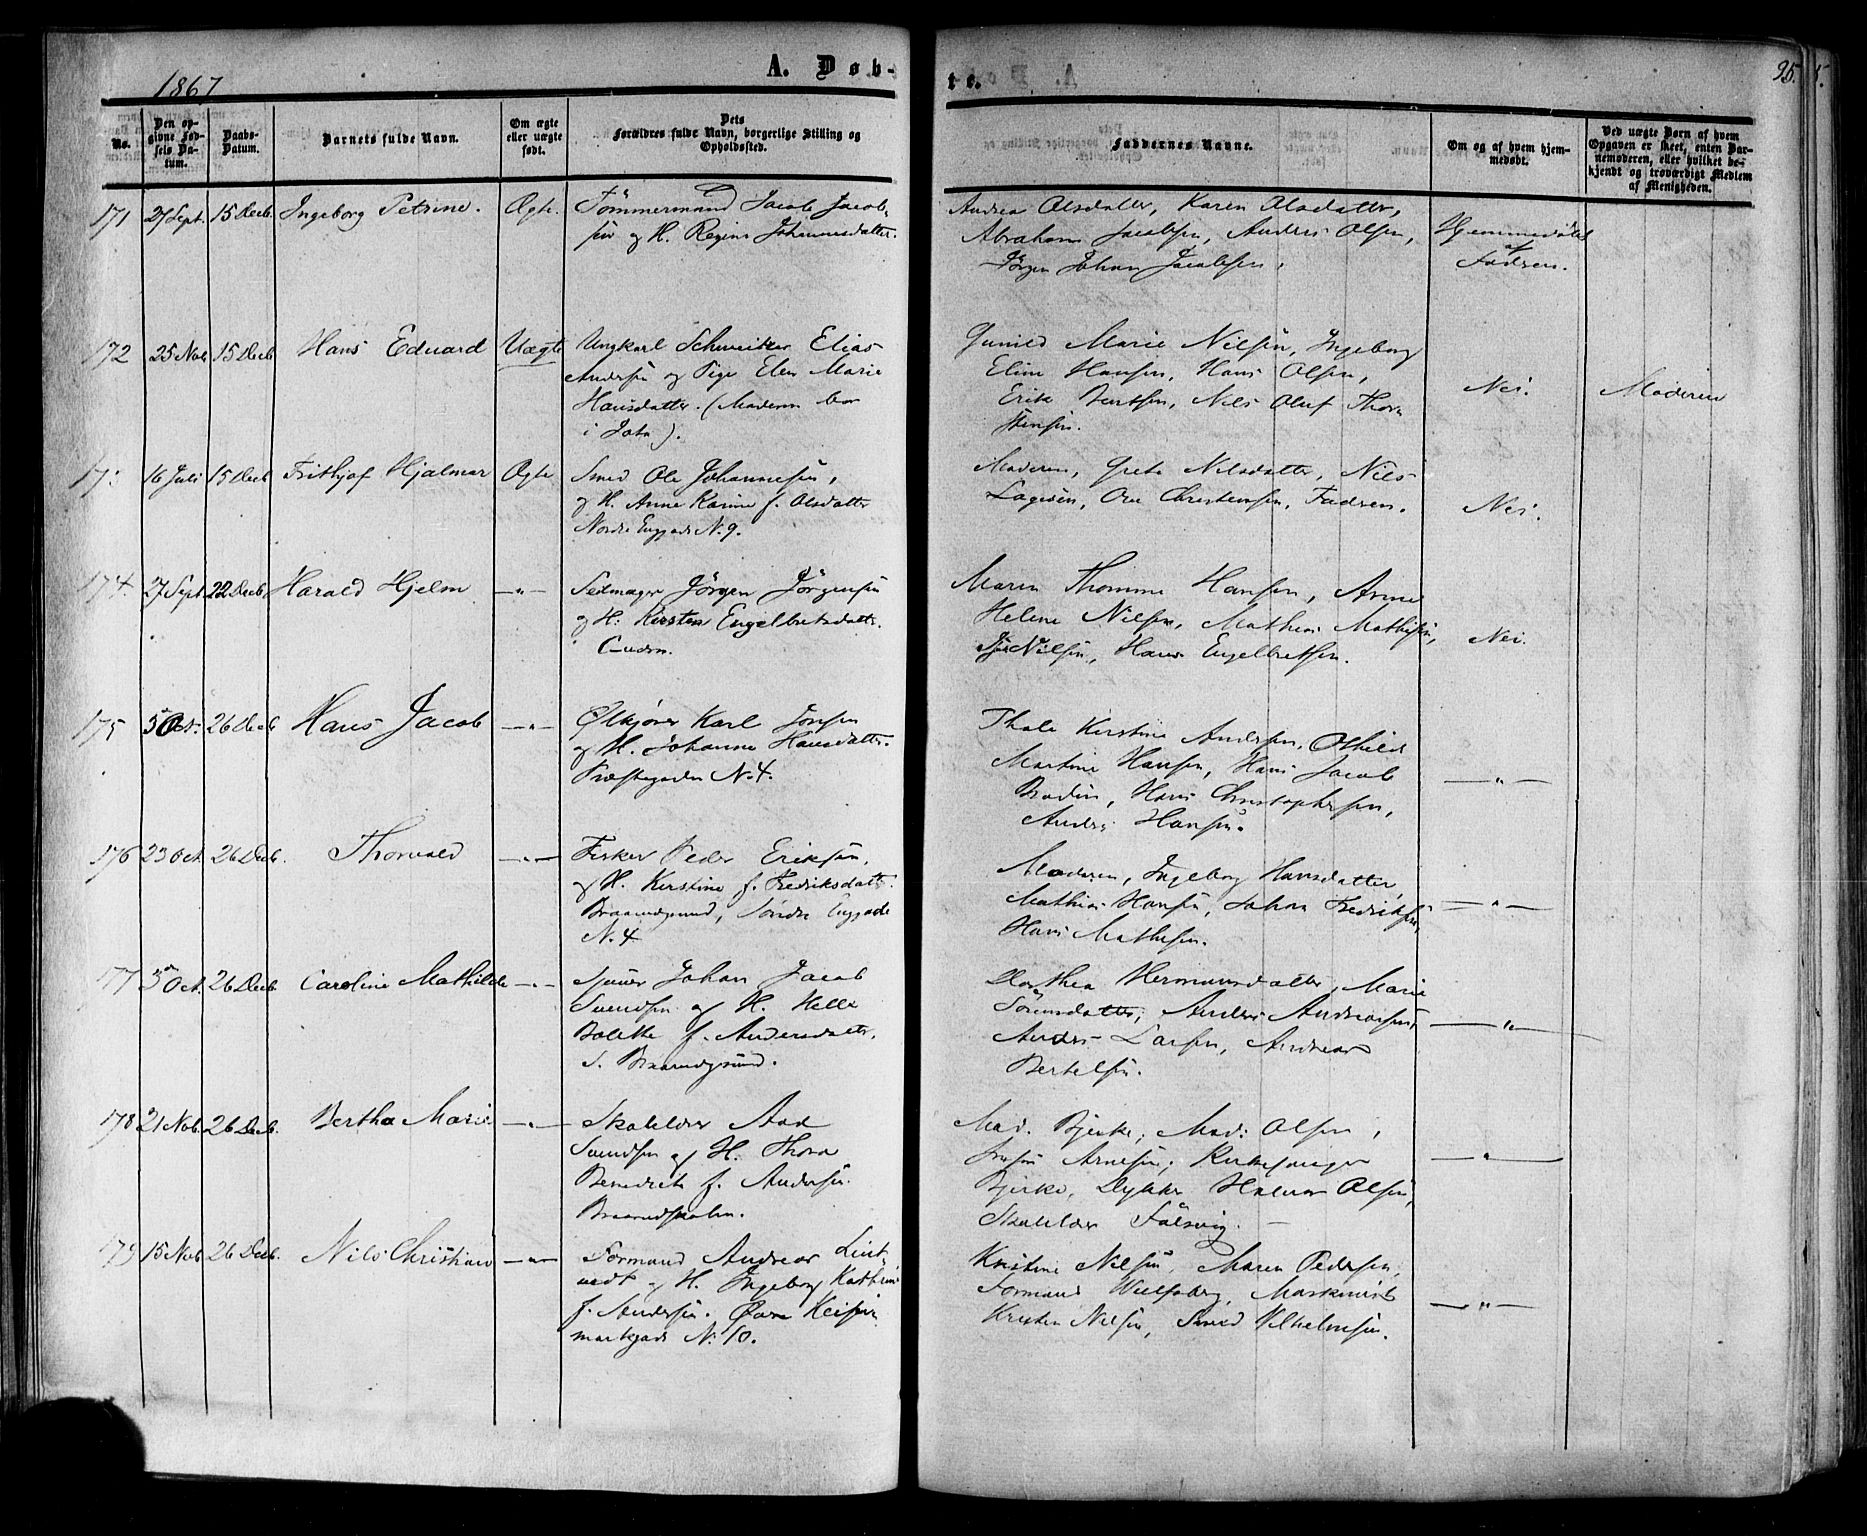 1867
A. Døb-
te.
95.
No.
Den op-
givne Fød-
sels Da-
tum.
Daabs-
Datum.
Barnets fulde Navn.
Om ægte
eller uægte
født.
Dets
Forældres fulde Navn, borgerlige Stilling og
Opholdssted.
Faddernes Navne.
Om og af hvem hjem-
medøbt.
Ved uægte Børn af hvem
Opgaven er skeet, enten Bar-
nemoderen, eller hvilket be-
kjendt og troværdigt Medlem
af Menigheden.
171 27 Sept. 15 Decb. Ingeborg Petrine. Ægte.
Tømmermand Jacob Jacob-
sen og H. Regine Johannesdatter.
Andrea Olsdatter, Karen Olsdatter,
Abraham Jacobsen, Anders Olsen,
Jørgen Johan Jacobsen.
Hjemmedøbt
af
Fadren.
172 25 Nob 15 Decb Hans Eduard Uægte
Ungkarl Schweitzer Elias
Andersen og Pige Elen Marie
Hansdatter. (Moderen bor
i Jota).
Gunild Marie Nilsen, Ingeborg
Eline Hansen, Hans Olsen,
Erik Berntsen, Nils Oluf Thor
stensen.
Nei.
Moderen
173 16 Juli 15 Decb Frithjof Hjalmar Ægte
Smed Ole Johannesen,
og H. Anne Karine f. Olsdatter
Nordre Enggade N. 9.
Moderen, Grete Nilsdatter, Nils
Lagesen, Ole Christensen, Fadren.
Nei.
174 27 Sept 22 Decb. Harald Hjelm —"—
Seilmager Jørgen Jørgensen
og H. Kirsten Engelbretsdatter.
Maren Thomine Hansen, Anne
Helene Nilsen, Mathias Mathisen,
Nilsen, Hans Engelbretsen.
Nei.
175 5 Oct. 26 Decb Hans Jacob —"—
Ølkjører Karl Jonsen
og H. Johanne Hansdatter.
Præstegaden N. 4.
Thale Kirstine Andersen, Othilde
Martine Hansen, Hans Jacob
Brodin, Hans Christophersen,
Anders Hansen.
—"—
176 23 Oct. 26 Decb. Thorvald —"—
Fisker Peder Eriksen,
og H. Kirstine f. Fredriksdatter.
Braarudgrund, Søndre Enggade
N. 4
Moderen, Ingeborg Hansdatter,
Mathias Hansen, Johan Fredriksen,
Hans Mathisen.
—"—
177 5 Oct. 26 Decb. Caroline Mathilde —"—
Johan Jacob
Svendsen og H. Helle
Bolette f. Andersdatter,
S. Braarudgrund.
Dorthea Hermansdatter, Marie
Sørensdatter, Anders Andreasen,
Anders Larsen, Andreas
Bertelsen.
—"—
178 21 Nob. 26 Decb. Bertha Marie —"—
Skolelærer Aad
Svendsen og H. Thora
Benedicte f. Andersen.
Braarudskolen.
Mad. Bjerke, Mad: Olsen,
Arnesen, Kirkesanger
Bjerke, Dykker Halvor Olsen,
Skolelærer Falsvig.
—"—
179 15 Nob 26 Decb. Nils Christian —"—
Formand Andreas Lint-
vedt og H. Ingeborg Kathrine
f. Andersen. Øvre Keiser
markgade N. 10.
Kristine Nilsen, Maren Pedersen,
Formand Wulfsberg, Maskinist
Kristen Nilsen, Smed Vilhelmsen.
—"—